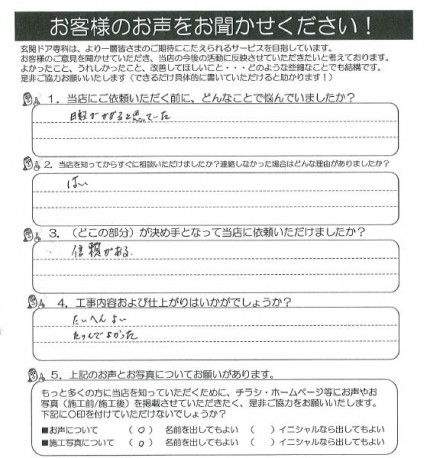 お客様のお声をお聞かせください！
玄関ドア専科は、より一層皆さまのご期待にこたえられるサービスを目指しています。
お客様のご意見を聞かせていただき、当店の今後の活動に反映させていただきたいと考えております。
よかったこと、うれしかったこと、改善してほしいこと・・・どのような些細なことでも結構です。
是非ご協力お願いいたします（できるだけ具体的に書いていただけると助かります！）
1．当店にご依頼いただく前に、どんなことで悩んでいましたか？
日数がかかると思っていた
2．当店を知ってからすぐに相談いただけましたか？連絡しなかった場合はどんな理由がありましたか？
はい
3．（どこの部分）が決め手となって当店に依頼いただけましたか？
信頼がある.
4．工事内容および仕上がりはいかがでしょうか？
たいへんよい
たのんでよかった
5．上記のお声とお写真についてお願いがあります。
もっと多くの方に当店を知っていただくために、チラシ・ホームページ等にお声やお
写真（施工前/施工後）を掲載させていただきたく、是非ご協力をお願いいたします。
下記に○印を付けていただけないでしょうか？
■お声について （○） 名前を出してもよい （ ）イニシャルなら出してもよい
■施工写真について（○） 名前を出してもよい （ ）イニシャルなら出してもよい